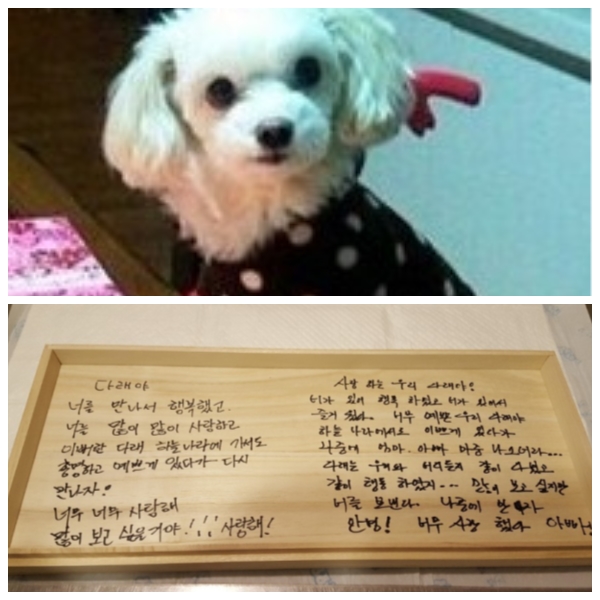 다래야
너를 만나서 행복했고.
너를 많이 많이 사랑하고
이뻐란 다래 하늘나라에 가서도
총명하고 예쁘게 있다가 다시
만나자!
너무 너무 사랑해
많이 보고 싶을거야!!! 사랑해!
사랑 하는 우리 다래야!
너가 있어 행복 하였고 너가 있어서
즐거웠다. 너무 예쁜 우리 다래야
하늘 나라에서도 이쁘게 있다가
나중에 엄마. 아빠 마중 나오너라...
다래는 우리와 같이 살았고
같이 행동 하였지... 많이 보고 싶지만
너를 보낸다. 나중에 만나자
안녕! 너무 사랑 했다 아빠!